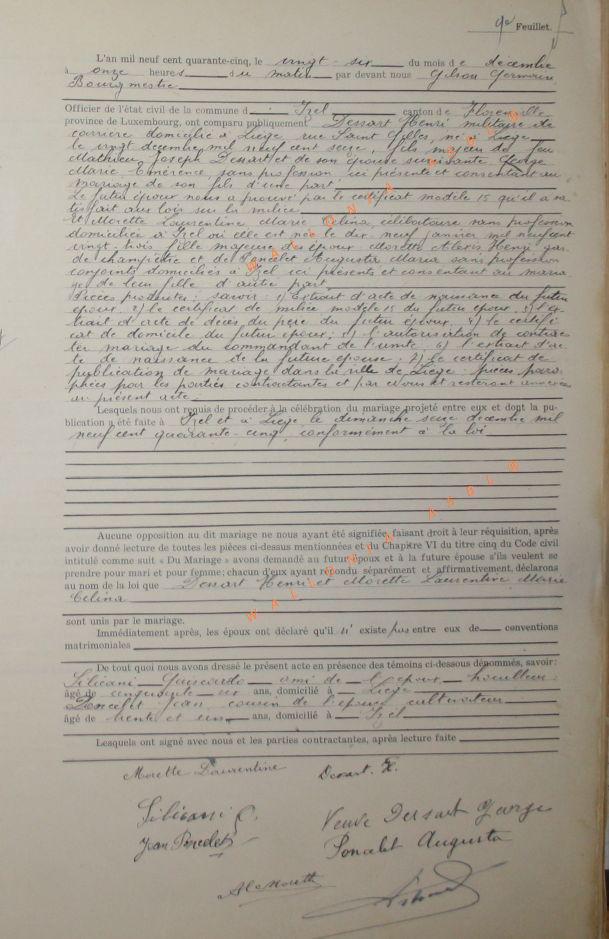 9e Feuillet.
L'an mil neuf cent quarante-cinq, le vingt-six du mois de décembre
à onze heures du matin par devant nous Gilson Germain
Bourgmestre
Officier de l'état civil de la commune d Izel canton de Florenville
province de Luxembourg, ont comparu publiquement Dessart Henri militaire de
carrière domicilié à Liège rue Saint Gilles, né à Liège
le vingt décembre mil neuf cent seize, fils majeur de feu
Mathieu Joseph Dessart et de son épouse survivante George
Marie Émerence sans profession, ici présente et consentant au
mariage de son fils d'une part.
Le futur époux nous a prouvé par le certificat modèle 15 qu'il a sa-
tisfait aux lois sur la milice
et Morette Laurentine Marie Celina, célibataire sans profession
domiciliée à Izel où elle est née le dix-neuf janvier mil neuf cent
vingt-trois fille majeure des époux Morette Alexis Henri gar-
de champêtre et de Poncelet Augusta Maria sans profession
conjoints domiciliés à Izel ici présents et consentant au maria-
ge de leur fille d'autre part
Pièces produites: savoir: 1) Extrait d'acte de naissance du futur
époux. 2) le certificat de milice modèle 15 du futur époux. 3) l'ex-
trait d'acte de décès du père du futur époux. 4) le certifi-
cat de domicile du futur époux; 5) l'autorisation de contrac-
ter mariage du commandant de l'unité. 6) l'extrait d'ac-
te de naissance de la future épouse; 7) le certificat de
publication de mariage dans la ville de Liège: pièces para-
phées par les parties contractantes et par Nous et resteront annexées
au présent acte.
Lesquels nous ont requis de procéder à la célébration du mariage projeté entre eux et dont la pu-
blication a été faite à Izel et à Liège le dimanche seize décembre mil
neuf cent quarante-cinq, conformément à la loi
Aucune opposition au dit mariage ne nous ayant été signifiée, faisant droit à leur réquisition, après
avoir donné lecture de toutes les pièces ci-dessus mentionnées et du Chapitre VI du titre cinq du Code civil
intitulé comme suit « Du Mariage » avons demandé au futur époux et à la future épouse s'ils veulent se
prendre pour mari et pour femme; chacun d'eux ayant répondu séparément et affirmativement, déclarons
au nom de la loi que Dessart Henri et Morette Laurentine Marie
Celina
sont unis par le mariage.
Immédiatement après, les époux ont déclaré qu'il n'existe pas entre eux de conventions
matrimoniales
De tout quoi nous avons dressé le présent acte en présence des témoins ci-dessous dénommés, savoir:
Silicani ami de l'époux houilleur
âgé de cinquante six ans, domicilié à Liège
Poncelet Jean, cousin de l'épouse cultivateur
âgé de trente et un ans, domicilié à Izel
Lesquels ont signé avec nous et les parties contractantes, après lecture faite
Morette Laurentine Dessart. H.
Silicani G.
Veuve Dessart George
Jean Poncelet
Poncelet Augusta
Al Morette
WALLONIA ASBL ®
WALLONIA ASBL ®